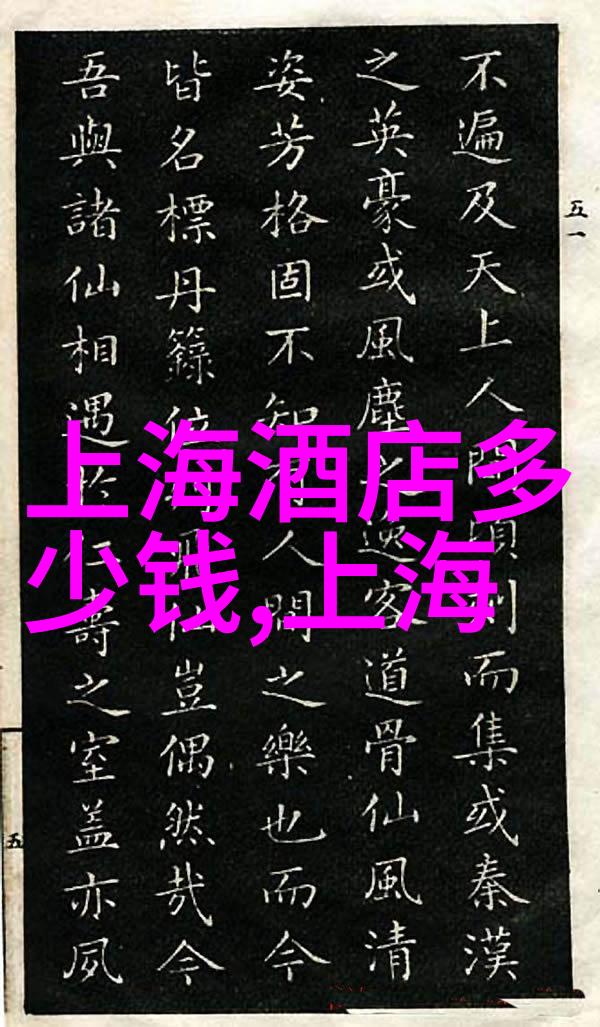 不遍及天上人間頃刻而集或秦漢
之英豪或風塵之逸客道骨仙風清
姿芳格固不知有人間之樂也而今
皆名標丹籙位仙豈偶然哉今
吾與諸仙相遇於仁壽之室蓋亦夙
五一
五
上海酒店多
少钱,上海